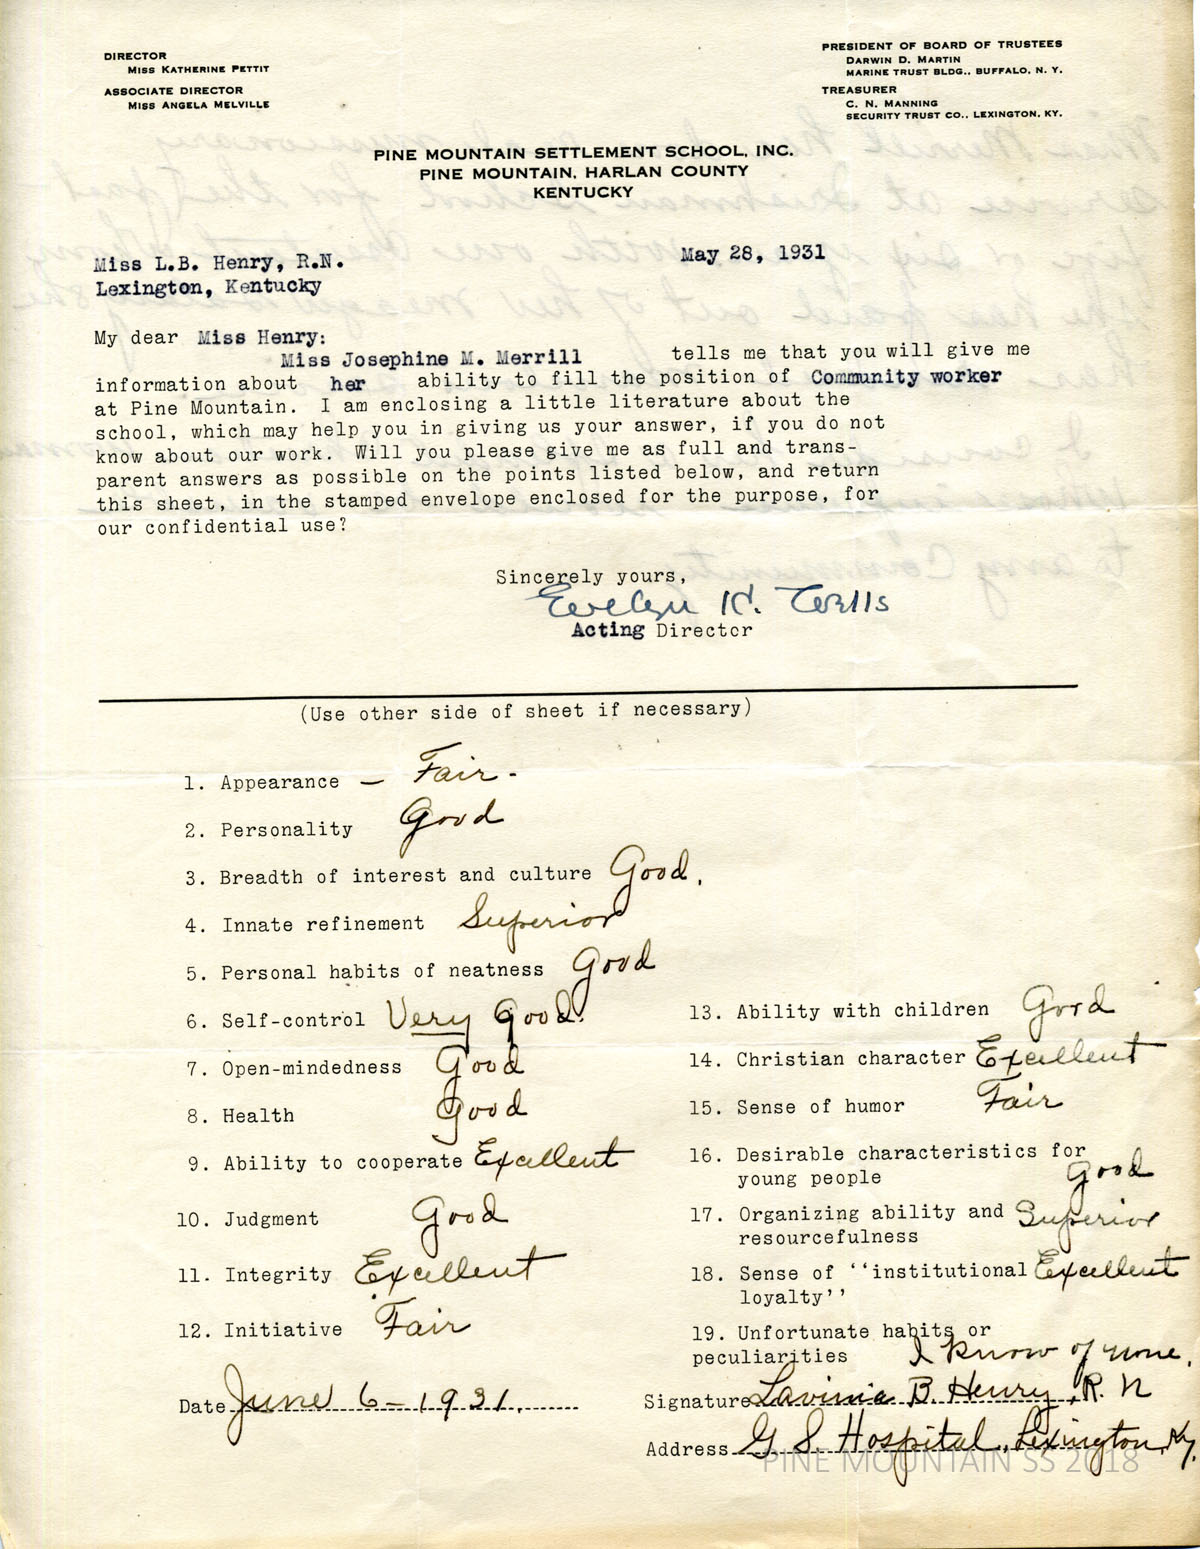 DIRECTOR
MISS KATHERINE PETTIT
ASSOCIATE DIRECTOR
MISS ANGELA MELVILLE
PRESIDENT OF BOARD OF TRUSTEES
DARWIN D. MARTIN
MARINE TRUST BLDG., BUFFALO, N. Y.
TREASURER
C. N. MANNING
SECURITY TRUST CO., LEXINGTON, KY.
PINE MOUNTAIN SETTLEMENT SCHOOL, INC.
PINE MOUNTAIN, HARLAN COUNTY
KENTUCKY
May 28, 1931
Miss L.B. Henry, R.N.
Lexington, Kentucky
My dear Miss Henry:
Miss Josephine M. Merrill tells me that you will give me
information about her ability to fill the position of Community worker
at Pine Mountain. I am enclosing a little literature about the
school, which may help you in giving us your answer, if you do not
know about our work. Will you please give me as full and trans-
parent answers as possible on the points listed below, and return
this sheet, in the stamped envelope enclosed for the purpose, for
our confidential use?
Sincerely yours,
Evelyn K. Wells
Acting Director
(Use other side of sheet if necessary)
1. Appearance – Fair -
2. Personality Good
3. Breadth of interest and culture Good.
4. Innate refinement Superior
5. Personal habits of neatness Good
6. Self-control Very Good.
7. Open-mindedness Good
8. Health Good
9. Ability to cooperate Excellent
10. Judgment Good
11. Integrity Excellent
12. Initiative Fair
13. Ability with children Good
14. Christian character Excellent
15. Sense of humor Fair
16. Desirable characteristics for
young people Good
17. Organizing ability and Superior
resourcefulness
18. Sense of ''institutional Excellent
loyalty''
19. Unfortunate habits or
peculiarities I know of none.
Date June 6 - 1931.
Signature Lavinia B. Henry, R. N
Address G. S. Hospital, Lexington, Ky.
PINE MOUNTAIN SS 2018